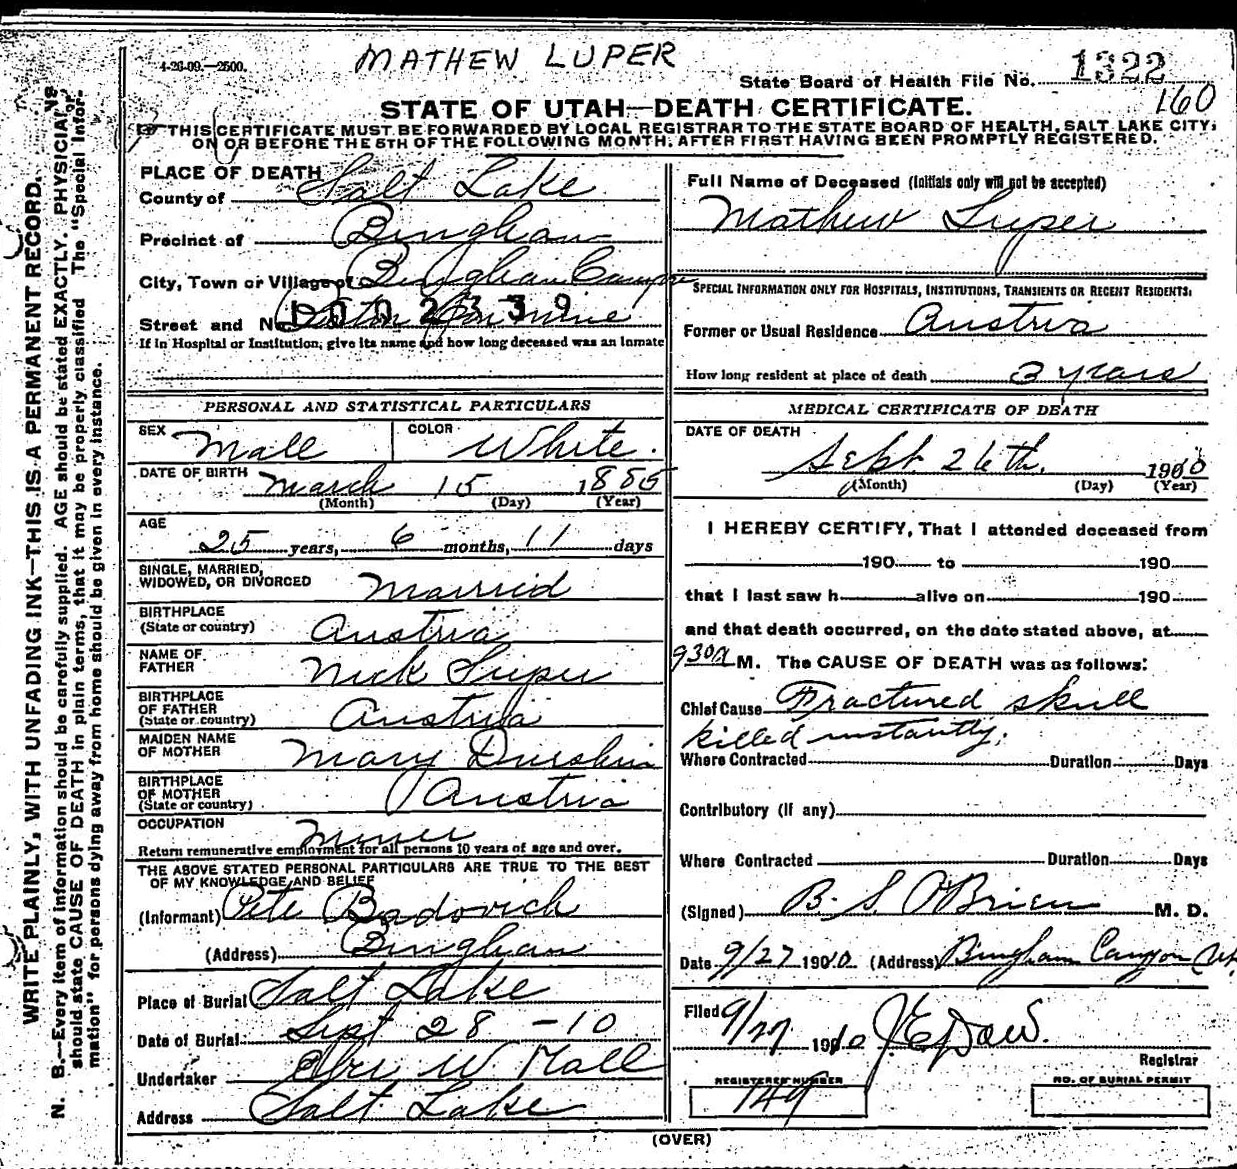 4-26-09.—2500.
MATHEW LUPER
State Board of Health File No. 1322
160
STATE OF UTAH—DEATH CERTIFICATE.
THIS CERTIFICATE MUST BE FORWARDED BY LOCAL REGISTRAR TO THE STATE BOARD OF HEALTH, SALT LAKE CITY,
ON OR BEFORE THE 5TH OF THE FOLLOWING MONTH, AFTER FIRST HAVING BEEN PROMPTLY REGISTERED.
WRITE PLAINLY, WITH UNFADING INK—THIS IS A PERMANENT RECORD.
N. B.—Every item of information should be carefully supplied. AGE should be stated EXACTLY. PHYSICIANS
should state CAUSE OF DEATH in plain terms, that it may be properly classified. The "Special Infor-
mation" for persons dying away from home should be given in every instance.
PLACE OF DEATH
County of Salt Lake
Precinct of Bingham
City, Town or Village of Bingham Canyon
Street and No. Mine
1002339
If in Hospital or Institution, give its name and how long deceased was an inmate
PERSONAL AND STATISTICAL PARTICULARS
SEX Male COLOR White.
DATE OF BIRTH March 15 1885
(Month) (Day) (Year)
AGE
25 years, 6 months, 11 days
SINGLE, MARRIED,
WIDOWED, OR DIVORCED Married
BIRTHPLACE
(State or country) Austria
NAME OF
FATHER Nick Luper
BIRTHPLACE
OF FATHER
(State or country) Austria
MAIDEN NAME
OF MOTHER Mary Durshin
BIRTHPLACE
OF MOTHER
(State or country) Austria
OCCUPATION Miner
Return remunerative employment for all persons 10 years of age and over.
THE ABOVE STATED PERSONAL PARTICULARS ARE TRUE TO THE BEST
OF MY KNOWLEDGE AND BELIEF
(Informant) Pete Badovich
(Address) Bingham
Place of Burial Salt Lake
Date of Burial Sept 28 -10
Undertaker Eber W Hall
Address Salt Lake
Full Name of Deceased (Initials only will not be accepted)
Mathew Luper
SPECIAL INFORMATION ONLY FOR HOSPITALS, INSTITUTIONS, TRANSIENTS OR RECENT RESIDENTS:
Former or Usual Residence Austria
How long resident at place of death 3 years
MEDICAL CERTIFICATE OF DEATH
DATE OF DEATH
Sept. 26th. 1910
(Month) (Day) (Year)
I HEREBY CERTIFY, That I attended deceased from
190 to 190
that I last saw h alive on 190
and that death occurred, on the date stated above, at
930A M. The CAUSE OF DEATH was as follows:
Chief Cause Fractured skull
killed instantly.
Where Contracted Duration Days
Contributory (if any)
Where Contracted Duration Days
(Signed) B. S. O'Brien M. D.
Date 9/27 1910 (Address) Bingham Canyon Ut.
Filed 9/27 1910 J. E. Dow.
Registrar
REGISTERED NUMBER
149
NO. OF BURIAL PERMIT
(OVER)